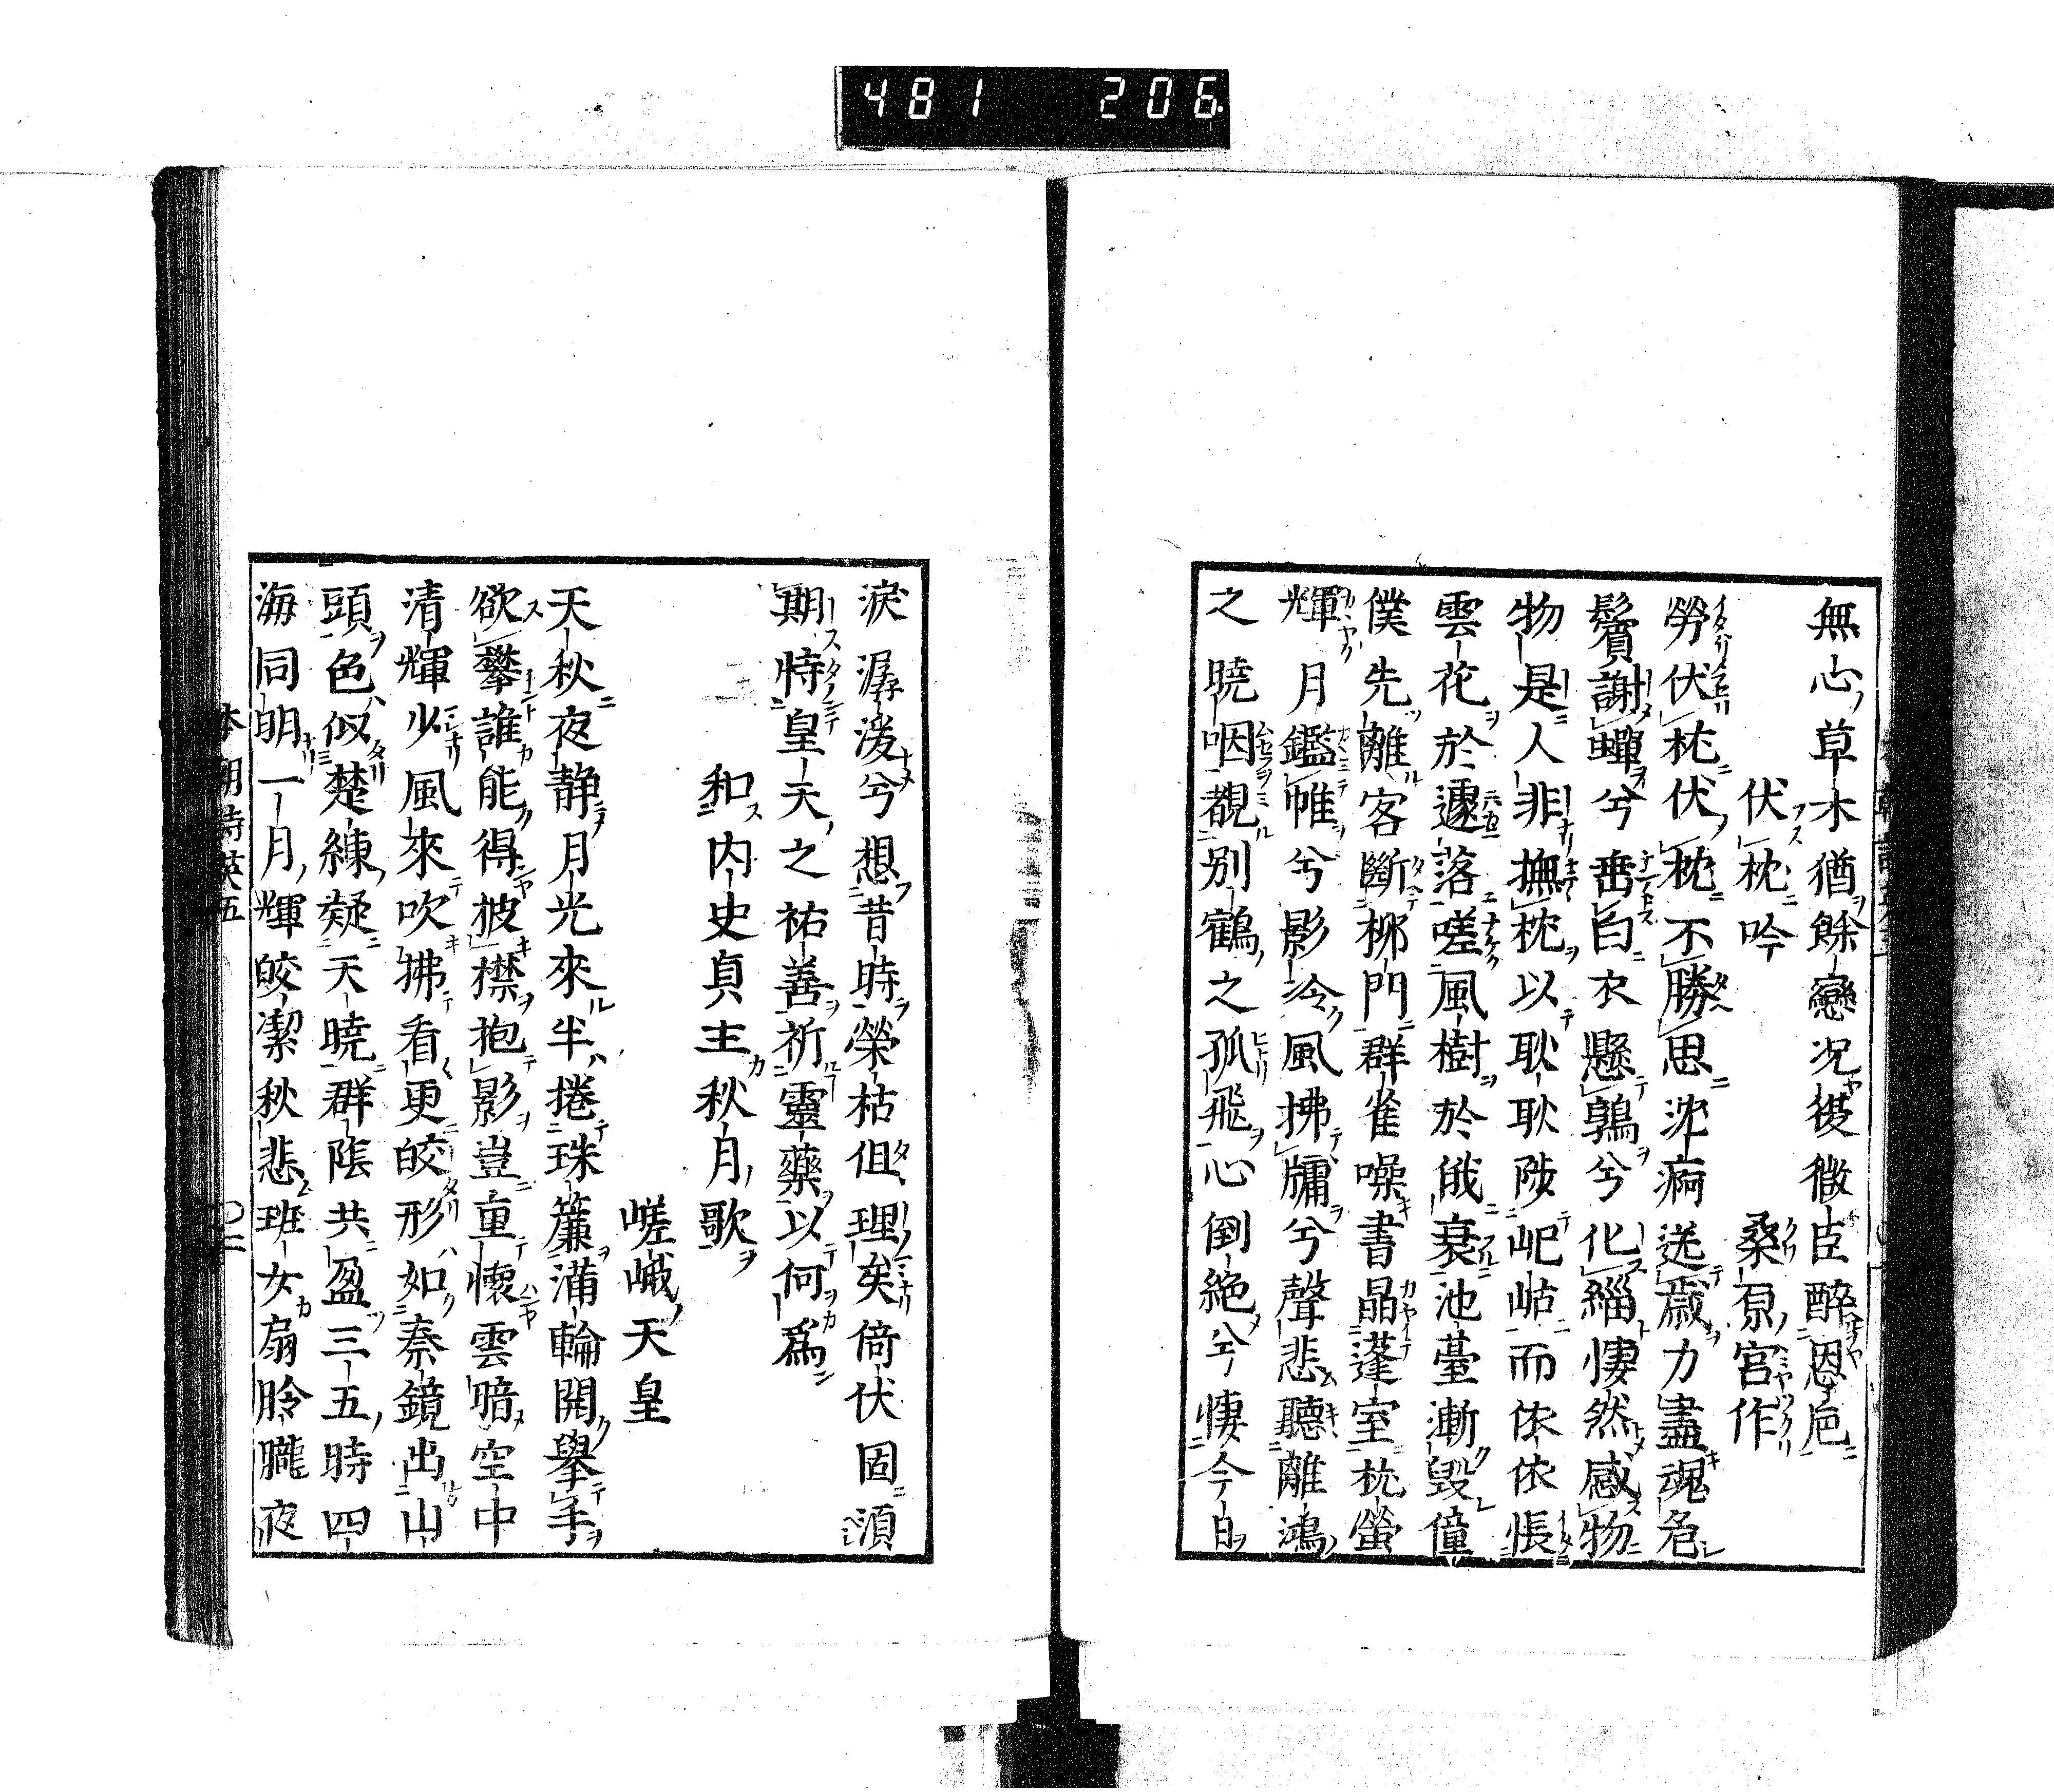 481 206
無心草木猶餘戀况復微臣醉恩巵
伏枕吟
桑原宮作
勞伏枕伏枕不勝思沈痾送歲力盡魂危
鬢謝蟬兮垂白衣懸鶉兮化緇悽然感物
物是人非撫枕以耿耿陟屺岵而依依悵
雲花於遽落嗟風樹於俄衰池臺漸毀僮
僕先離客斷柳門群雀噪書晶蓬室枕螢
輝月鑑帷兮影冷風拂牖兮聲悲聽離鴻
之曉咽覩別鶴之孤飛心倒絶兮悽今日
淚潺湲兮想昔時榮枯但理矣倚伏固須
期恃皇天之祐善祈靈藥以何爲
和内史貞主秋月歌
嵯峨天皇
天秋夜静月光來半捲珠簾滿輪開擧手
欲攀誰能得披襟抱影豈重懷雲暗空中
清輝少風來吹拂看更皎形如秦鏡出山
頭色似楚練疑天曉群陰共盈三五時四
海同明一月輝皎潔秋悲班女扇朎朧夜
本朝詩英五